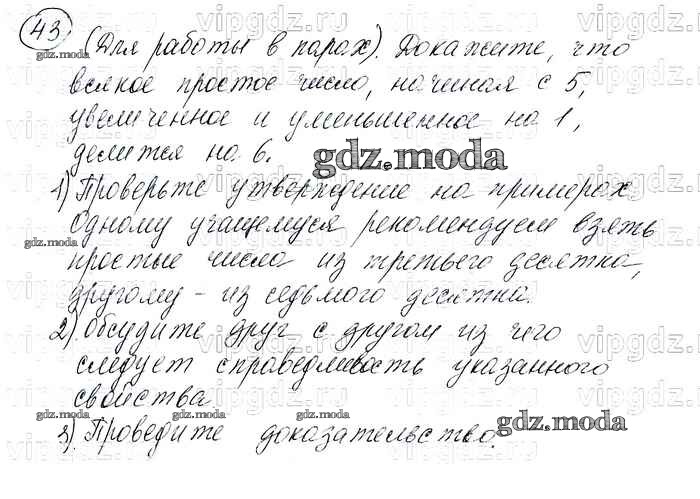 43
(Для работы в парах). Докажите, что
всякое простое число, начиная с 5,
увеличенное и уменьшенное на 1,
делится на 6.
1) Проверьте утверждение на примерах.
Одному учащемуся рекомендуем взять
простые числа из третьего десятка,
другому - из седьмого десятка.
2) Обсудите друг с другом из чего
следует справедливость указанного
свойства
3) Проведите доказательство.
gdz.moda
gdz.moda
gdz.moda
gdz.moda
gdz.moda
gdz.moda
gdz.moda
gdz.moda
vipgdz.ru